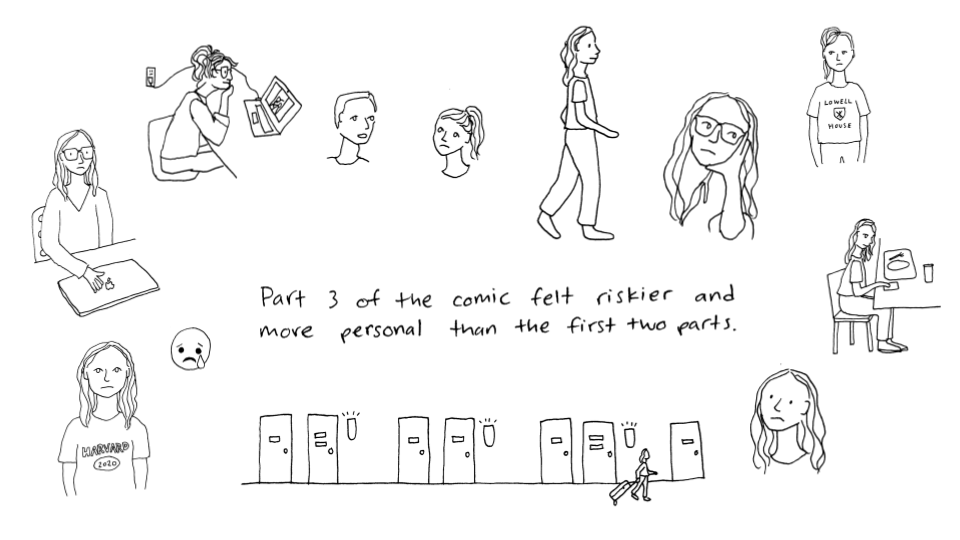 LOWELL
HOUSE
Part 3 of the comic felt riskier and
more personal than the first two parts.
HARVARD
2020